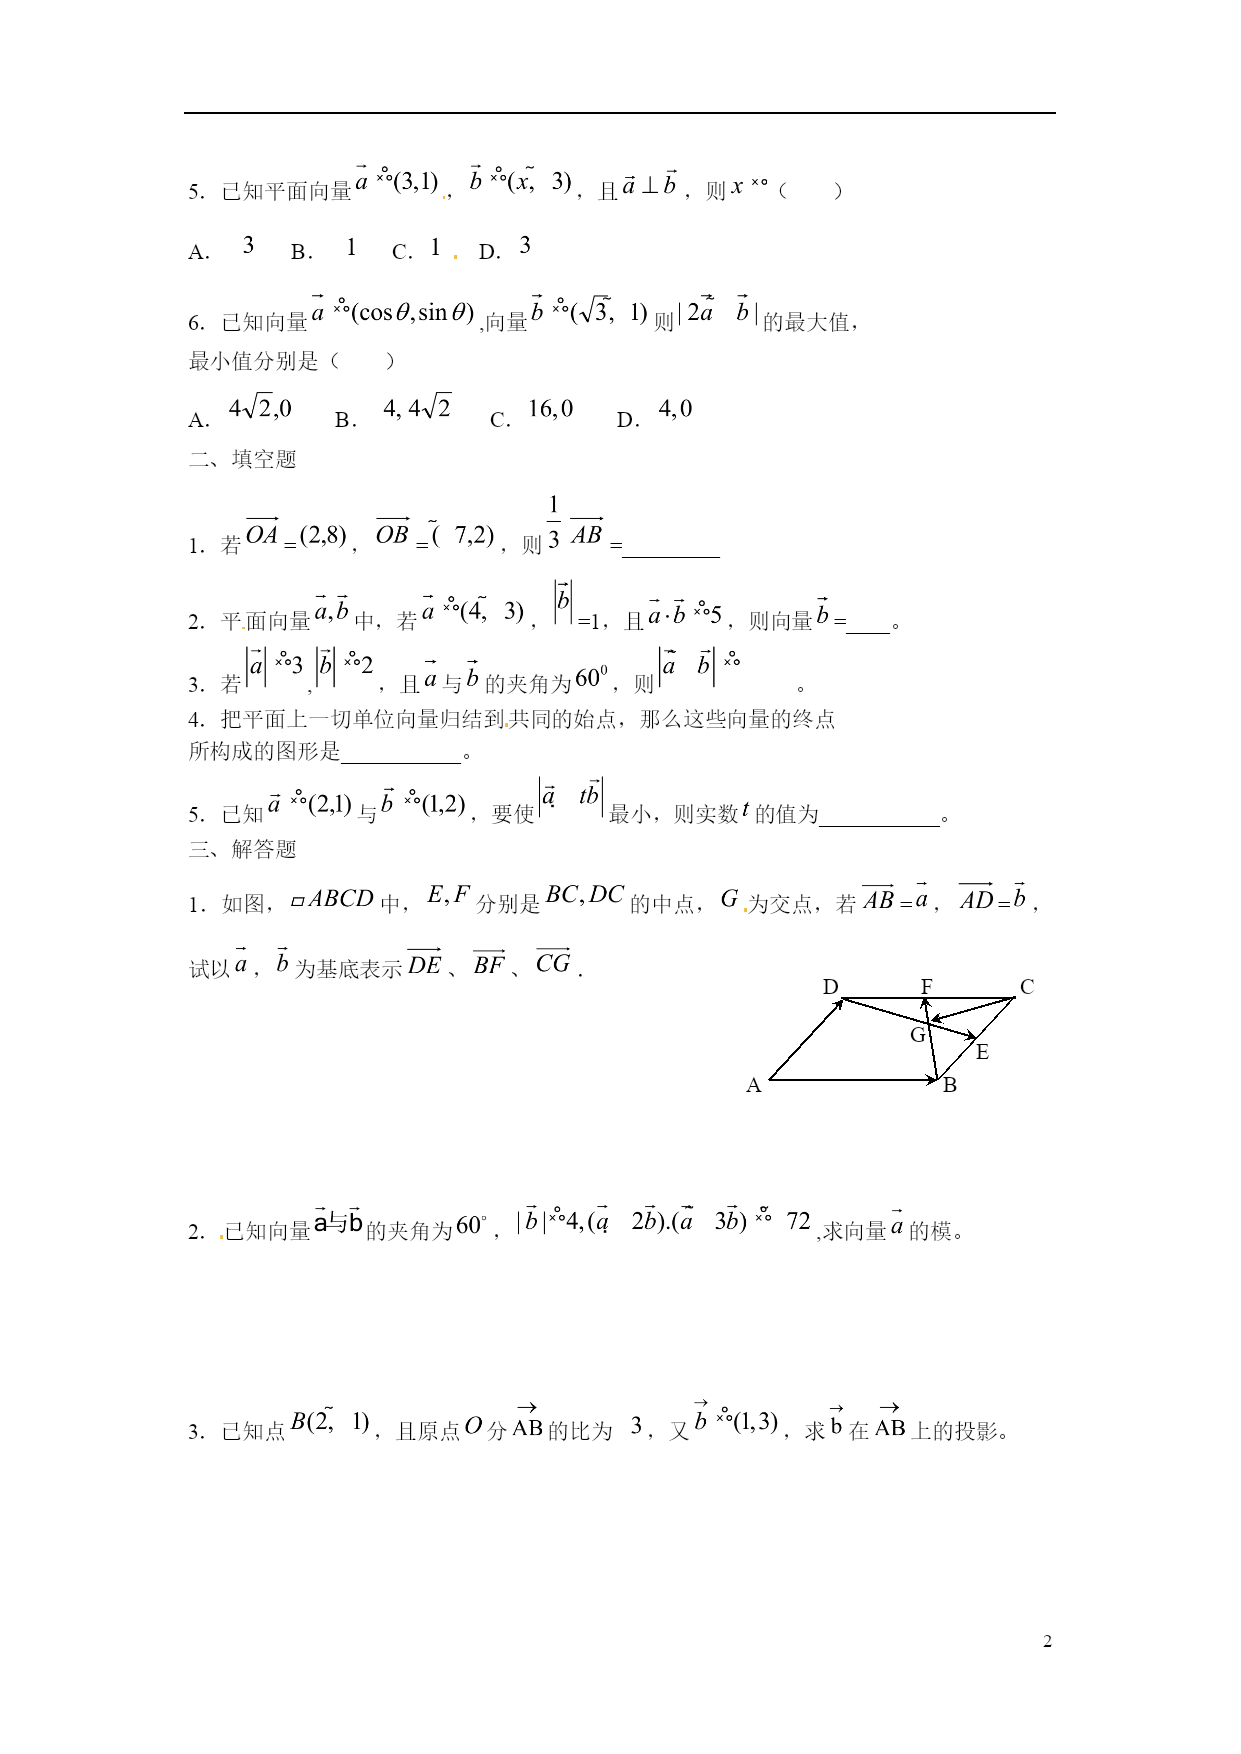 5．已知平面向量 a⃗ ×°(3,1)，b⃗ ×°(x,˜ 3)，且 a⃗ ⊥ b⃗，则 x ×°（　　）
A． 3　B． 1　C．1　D．3
6．已知向量 a⃗ ×°(cosθ,sinθ),向量 b⃗ ×°(√3,˜ 1)则| 2a⃗˜ b⃗ |的最大值，
最小值分别是（　　）
A．4√2,0　B． 4, 4√2　C．16,0　D． 4,0
二、填空题
1．若 OA⃗=(2,8)，OB⃗=(˜ 7,2)，则 1/3 AB⃗=_________
2．平面向量 a⃗,b⃗ 中，若 a⃗ ×°(4,˜ 3)，|b⃗|=1，且 a⃗·b⃗ ×°5，则向量 b⃗=____。
3．若|a⃗| ×°3,|b⃗| ×°2，且 a⃗ 与 b⃗ 的夹角为60⁰，则|a⃗˜ b⃗| ×°　　。
4．把平面上一切单位向量归结到共同的始点，那么这些向量的终点
所构成的图形是___________。
5．已知 a⃗ ×°(2,1)与 b⃗ ×°(1,2)，要使|a⃗ tb⃗|最小，则实数 t 的值为___________。
三、解答题
1．如图，▱ABCD 中，E,F 分别是 BC,DC 的中点，G 为交点，若 AB⃗=a⃗，AD⃗=b⃗，
试以 a⃗，b⃗ 为基底表示 DE⃗、BF⃗、CG⃗．
D F C
G
E
A B
2．已知向量 a⃗与b⃗ 的夹角为60°，| b⃗ |×°4,(a⃗ 2b⃗).(a⃗˜ 3b⃗) ×° 72,求向量 a⃗ 的模。
3．已知点 B(2,˜ 1)，且原点 O 分 AB⃗ 的比为 3，又 b⃗ ×°(1,3)，求 b⃗ 在 AB⃗ 上的投影。
2